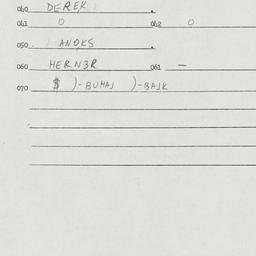 040 DEREK
041 0 042 0
050 ANOKS
060 HERN3R 061 —
070 $ )-BUMAJ )-BAJK